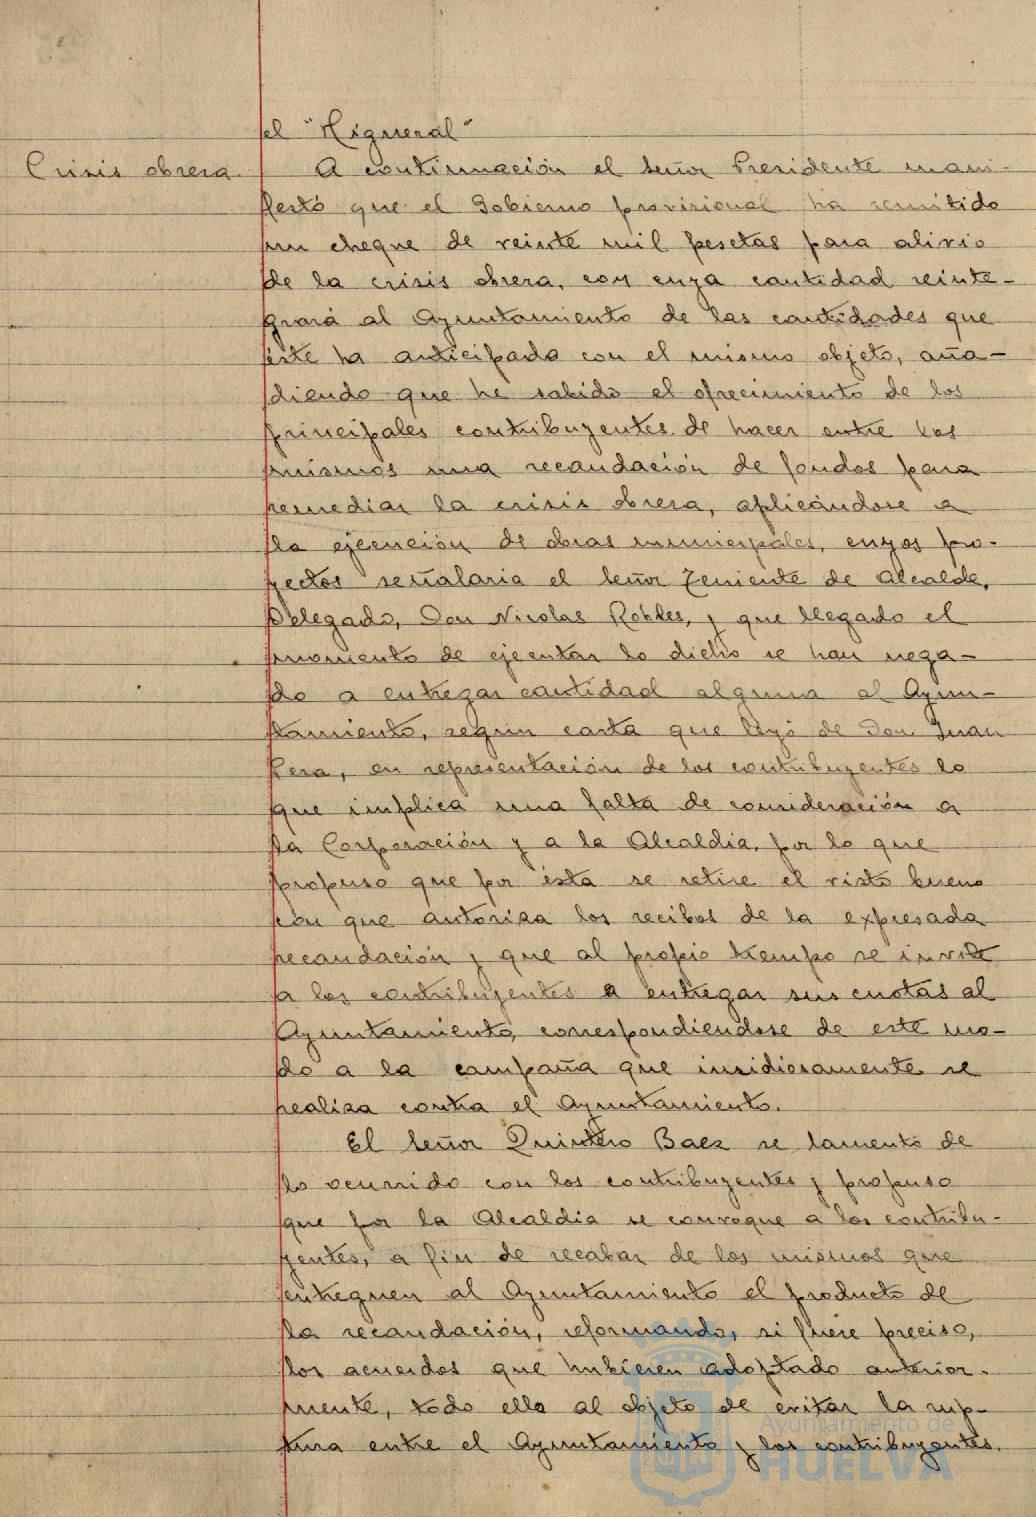 el "Higueral"
Crisis obrera. A continuación el señor Presidente mani-
festó que el Gobierno provisional ha remitido
un cheque de veinte mil pesetas para alivio
de la crisis obrera, con cuya cantidad reinte-
grará al Ayuntamiento de las cantidades que
éste ha anticipado con el mismo objeto, aña-
diendo que he sabido el ofrecimiento de los
principales contribuyentes de hacer entre los
mismos una recaudación de fondos para
remediar la crisis obrera, aplicándose a
la ejecución de obras municipales, cuyos pro-
yectos señalaria el señor Teniente de Alcalde,
Delegado, Don Nicolas Robles, y que llegado el
momento de ejecutar lo dicho se han nega-
do a entregar cantidad alguna al Ayun-
tamiento, según carta que leyó de Don Juan
en representación de los contribuyentes lo
que implica una falta de consideración a
la Corporación y a la Alcaldia, por lo que
propuso que por ésta se retire el visto bueno
con que autoriza los recibos de la expresada
recaudación y que al propio tiempo se invite
a los contribuyentes a entregar sus cuotas al
Ayuntamiento, correspondiendose de este mo-
do a la campaña que insidiosamente se
realiza contra el Ayuntamiento.
El señor Quintero Baez se lamentó de
lo ocurrido con los contribuyentes y propuso
que por la Alcaldia se convoque a los contribu-
yentes, a fin de recabar de los mismos que
entreguen al Ayuntamiento el producto de
la recaudación, reformando, si fuere preciso,
los acuerdos que hubieren adoptado anterior-
mente, todo ello al objeto de evitar la rup-
tura entre el Ayuntamiento y los contribuyentes.
Ayuntamiento de
HUELVA